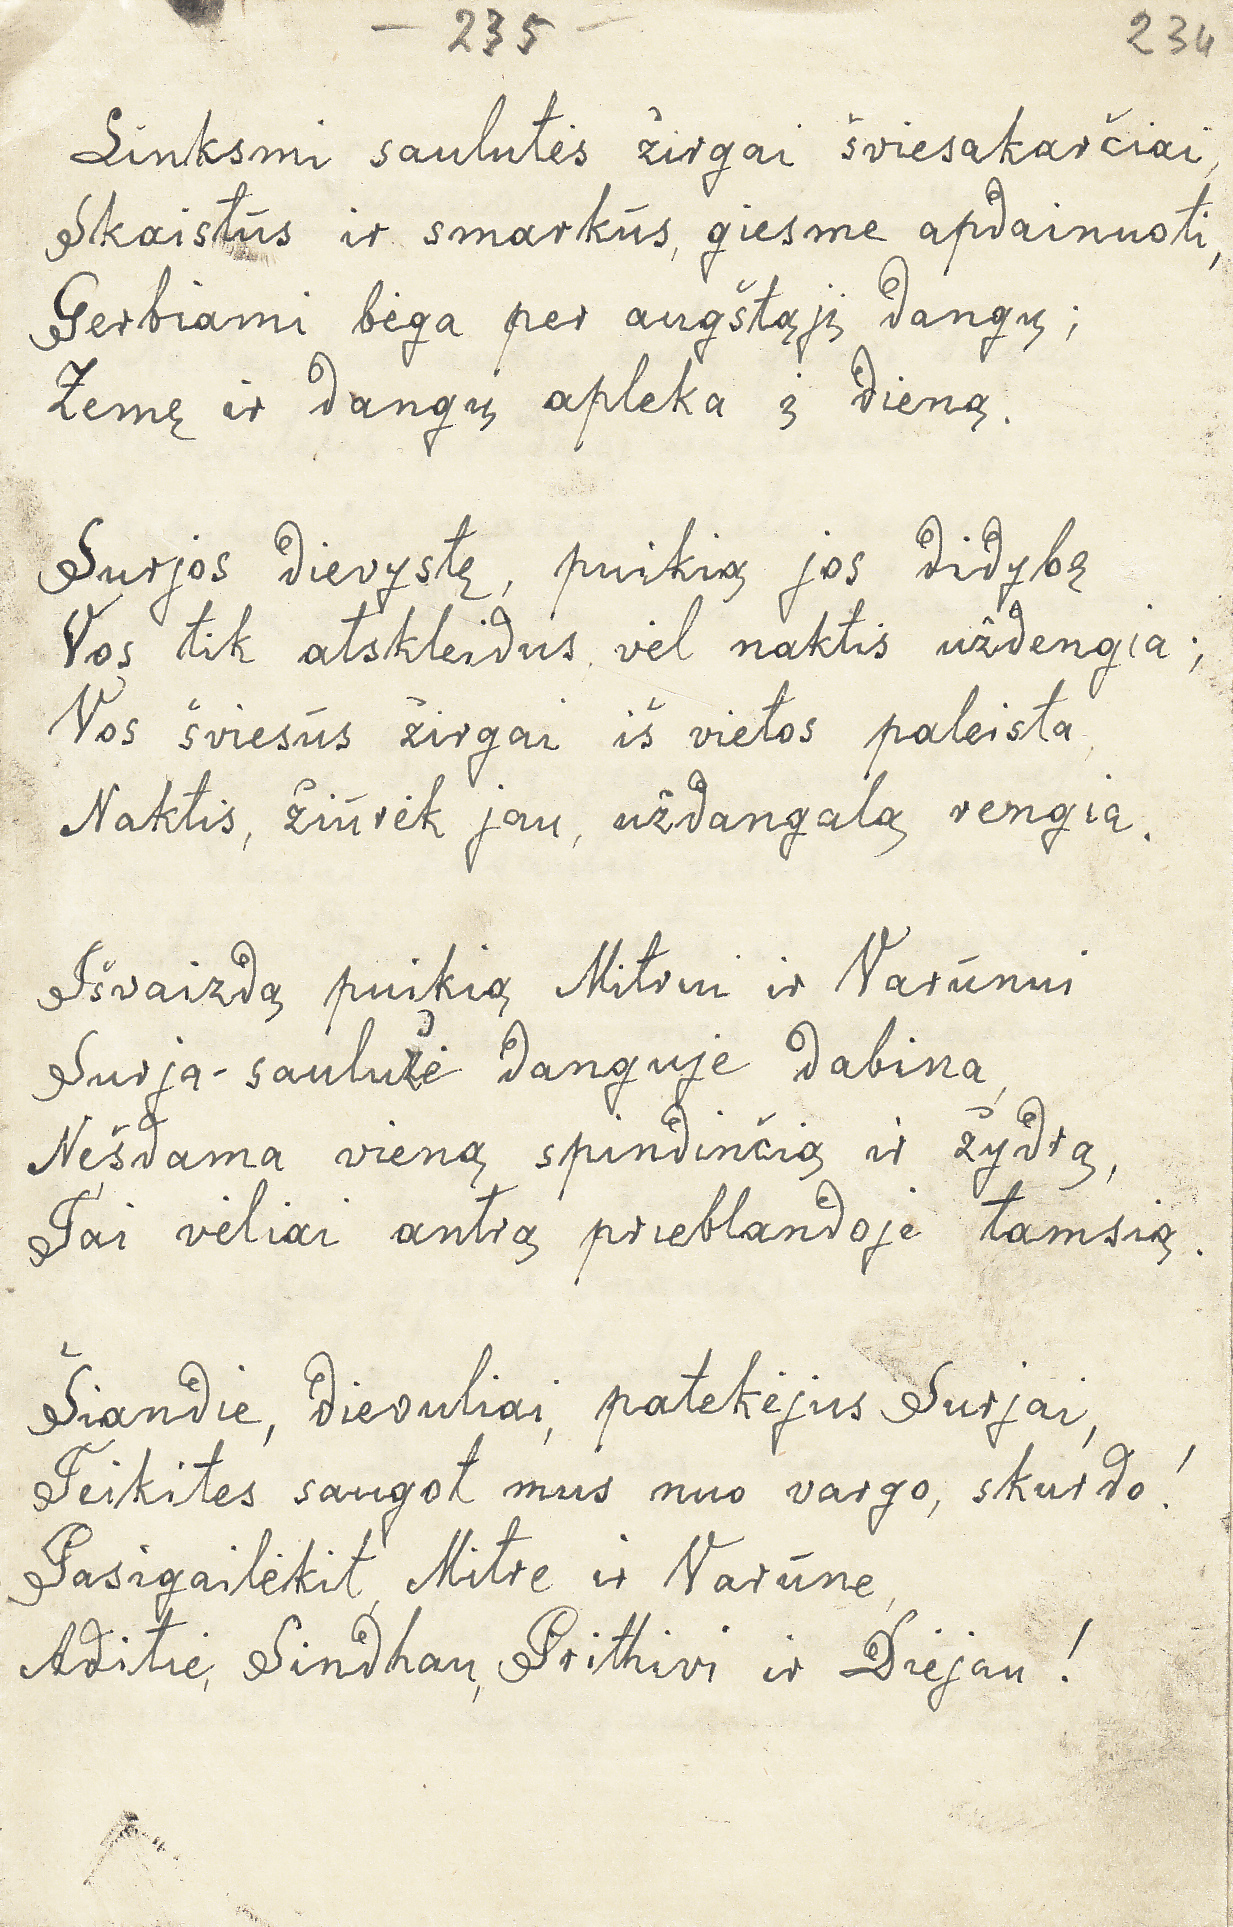 – 235 –
234
Linksmi saulutės žirgai šviesakarčiai,
Skaistūs ir smarkūs, giesme apdainuoti,
Gerbiami bėga per augštąjį dangų;
Žemę ir dangų apleka į dieną.
Surjos dievystę, puikią jos didybę
Vos tik atskleidus, vėl naktis uždengia;
Vos šviesūs žirgai iš vietos paleista,
Naktis, žiūrėk jau, uždangalą rengia.
Išvaizdą puikią Mitrui ir Varūnui
Surja-saulužė danguje dabina,
Nešdama vieną spindinčią ir žydrą,
Tai vėliai antrą prieblandoje tamsią.
Šiandie, dievuliai, patekėjus Surjai,
Teikitės saugot mus nuo vargo, skurdo!
Pasigailėkit, Mitre ir Varūne,
Aditie, Sindhau, Prithivi ir Diėjau!